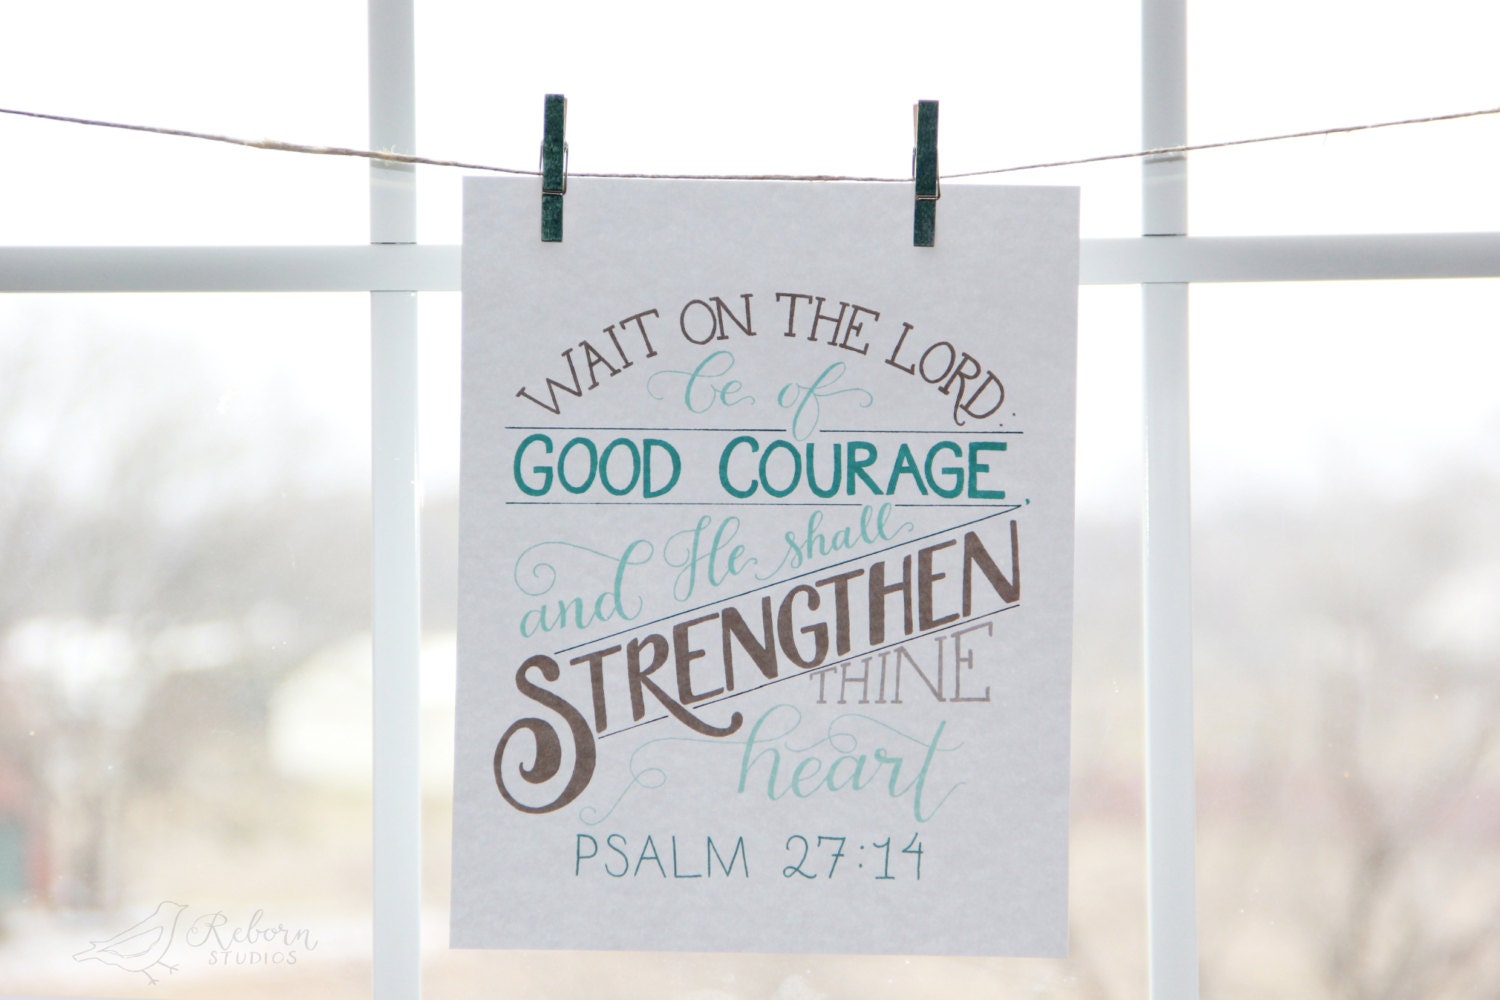 WAIT ON THE LORD:
be of
GOOD COURAGE,
and He shall
STRENGTHEN
THINE
heart
PSALM 27:14
Reborn
STUDIOS